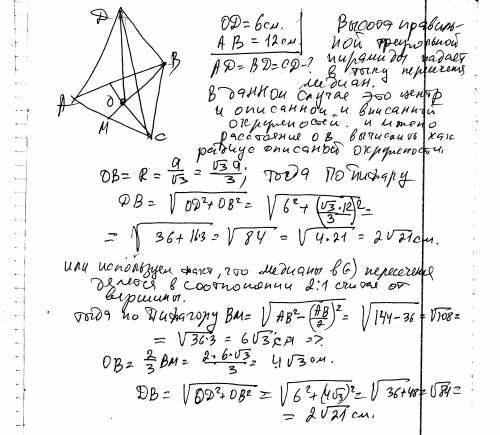 D
B
A
O
M
C
OD = 6 см.
AB = 12 см.
AD = BD = CD - ?
Высота правиль-
ной треугольной
пирамиды падает
в точку пересечен
медиан.
В данной случае это центр
и описанной и вписанной
окружностей. и можно
расстояние OB вычислить как
радиус описанной окружности.
OB = R = a/√3 = √3 a/3; тогда по Пифагору
DB = √(OD² + OB²) = √(6² + (√3·12/3)²) =
= √(36 + 16·3) = √84 = √(4·21) = 2√21 см.
или используем факт, что медианы в (·) пересечения
делятся в соотношении 2:1 считая от
вершины.
тогда по Пифагору BM = √(AB² - (AB/2)²) = √(144 - 36) = √108 =
= √(36·3) = 6√3 см =>
OB = 2/3 BM = 2·6·√3/3 = 4√3 см.
DB = √(OD² + OB²) = √(6² + (4√3)²) = √(36 + 48) = √84 =
= 2√21 см.